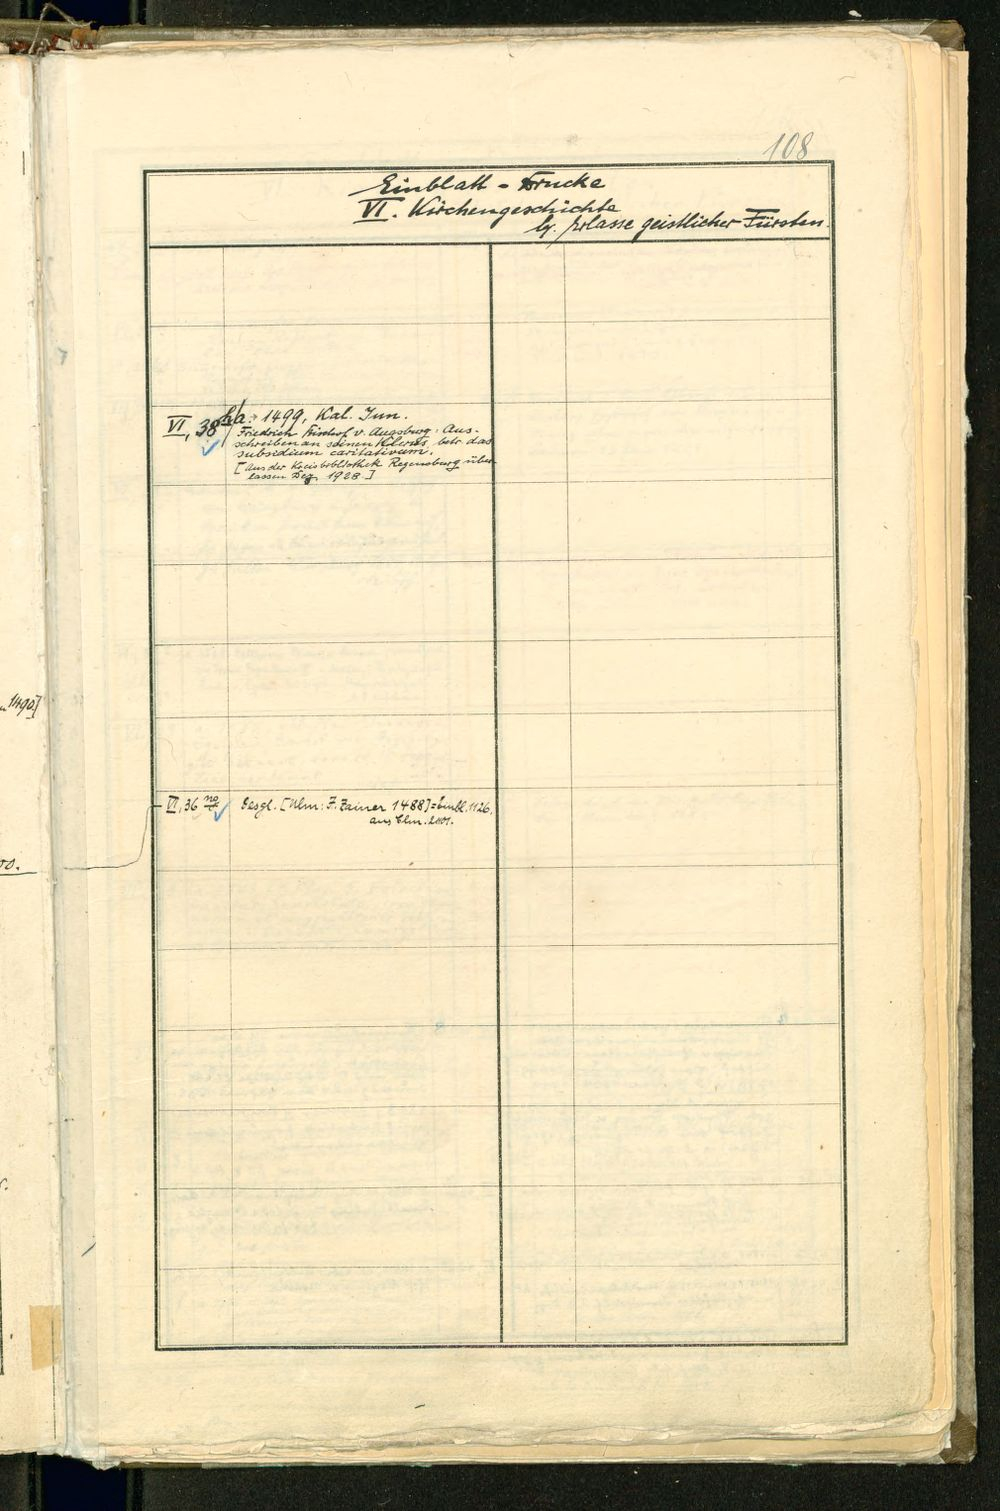 108
Einblatt-Drucke
VI. Kirchengeschichte
b). Erlasse geistlicher Fürsten.
VI, 38 ha: 1499, Kal. Jun.
Friedrich Bischof v. Augsburg: Aus-
schreiben an seinen Klerus, betr. das
subsidium caritativum.
[Aus der Kreisbibliothek Regensburg über
lassen Dez. 1928.]
1490]
VI, 36 no Desgl. [Ulm: J. Zainer 1488] = Einbl. 1126.
aus Clm.